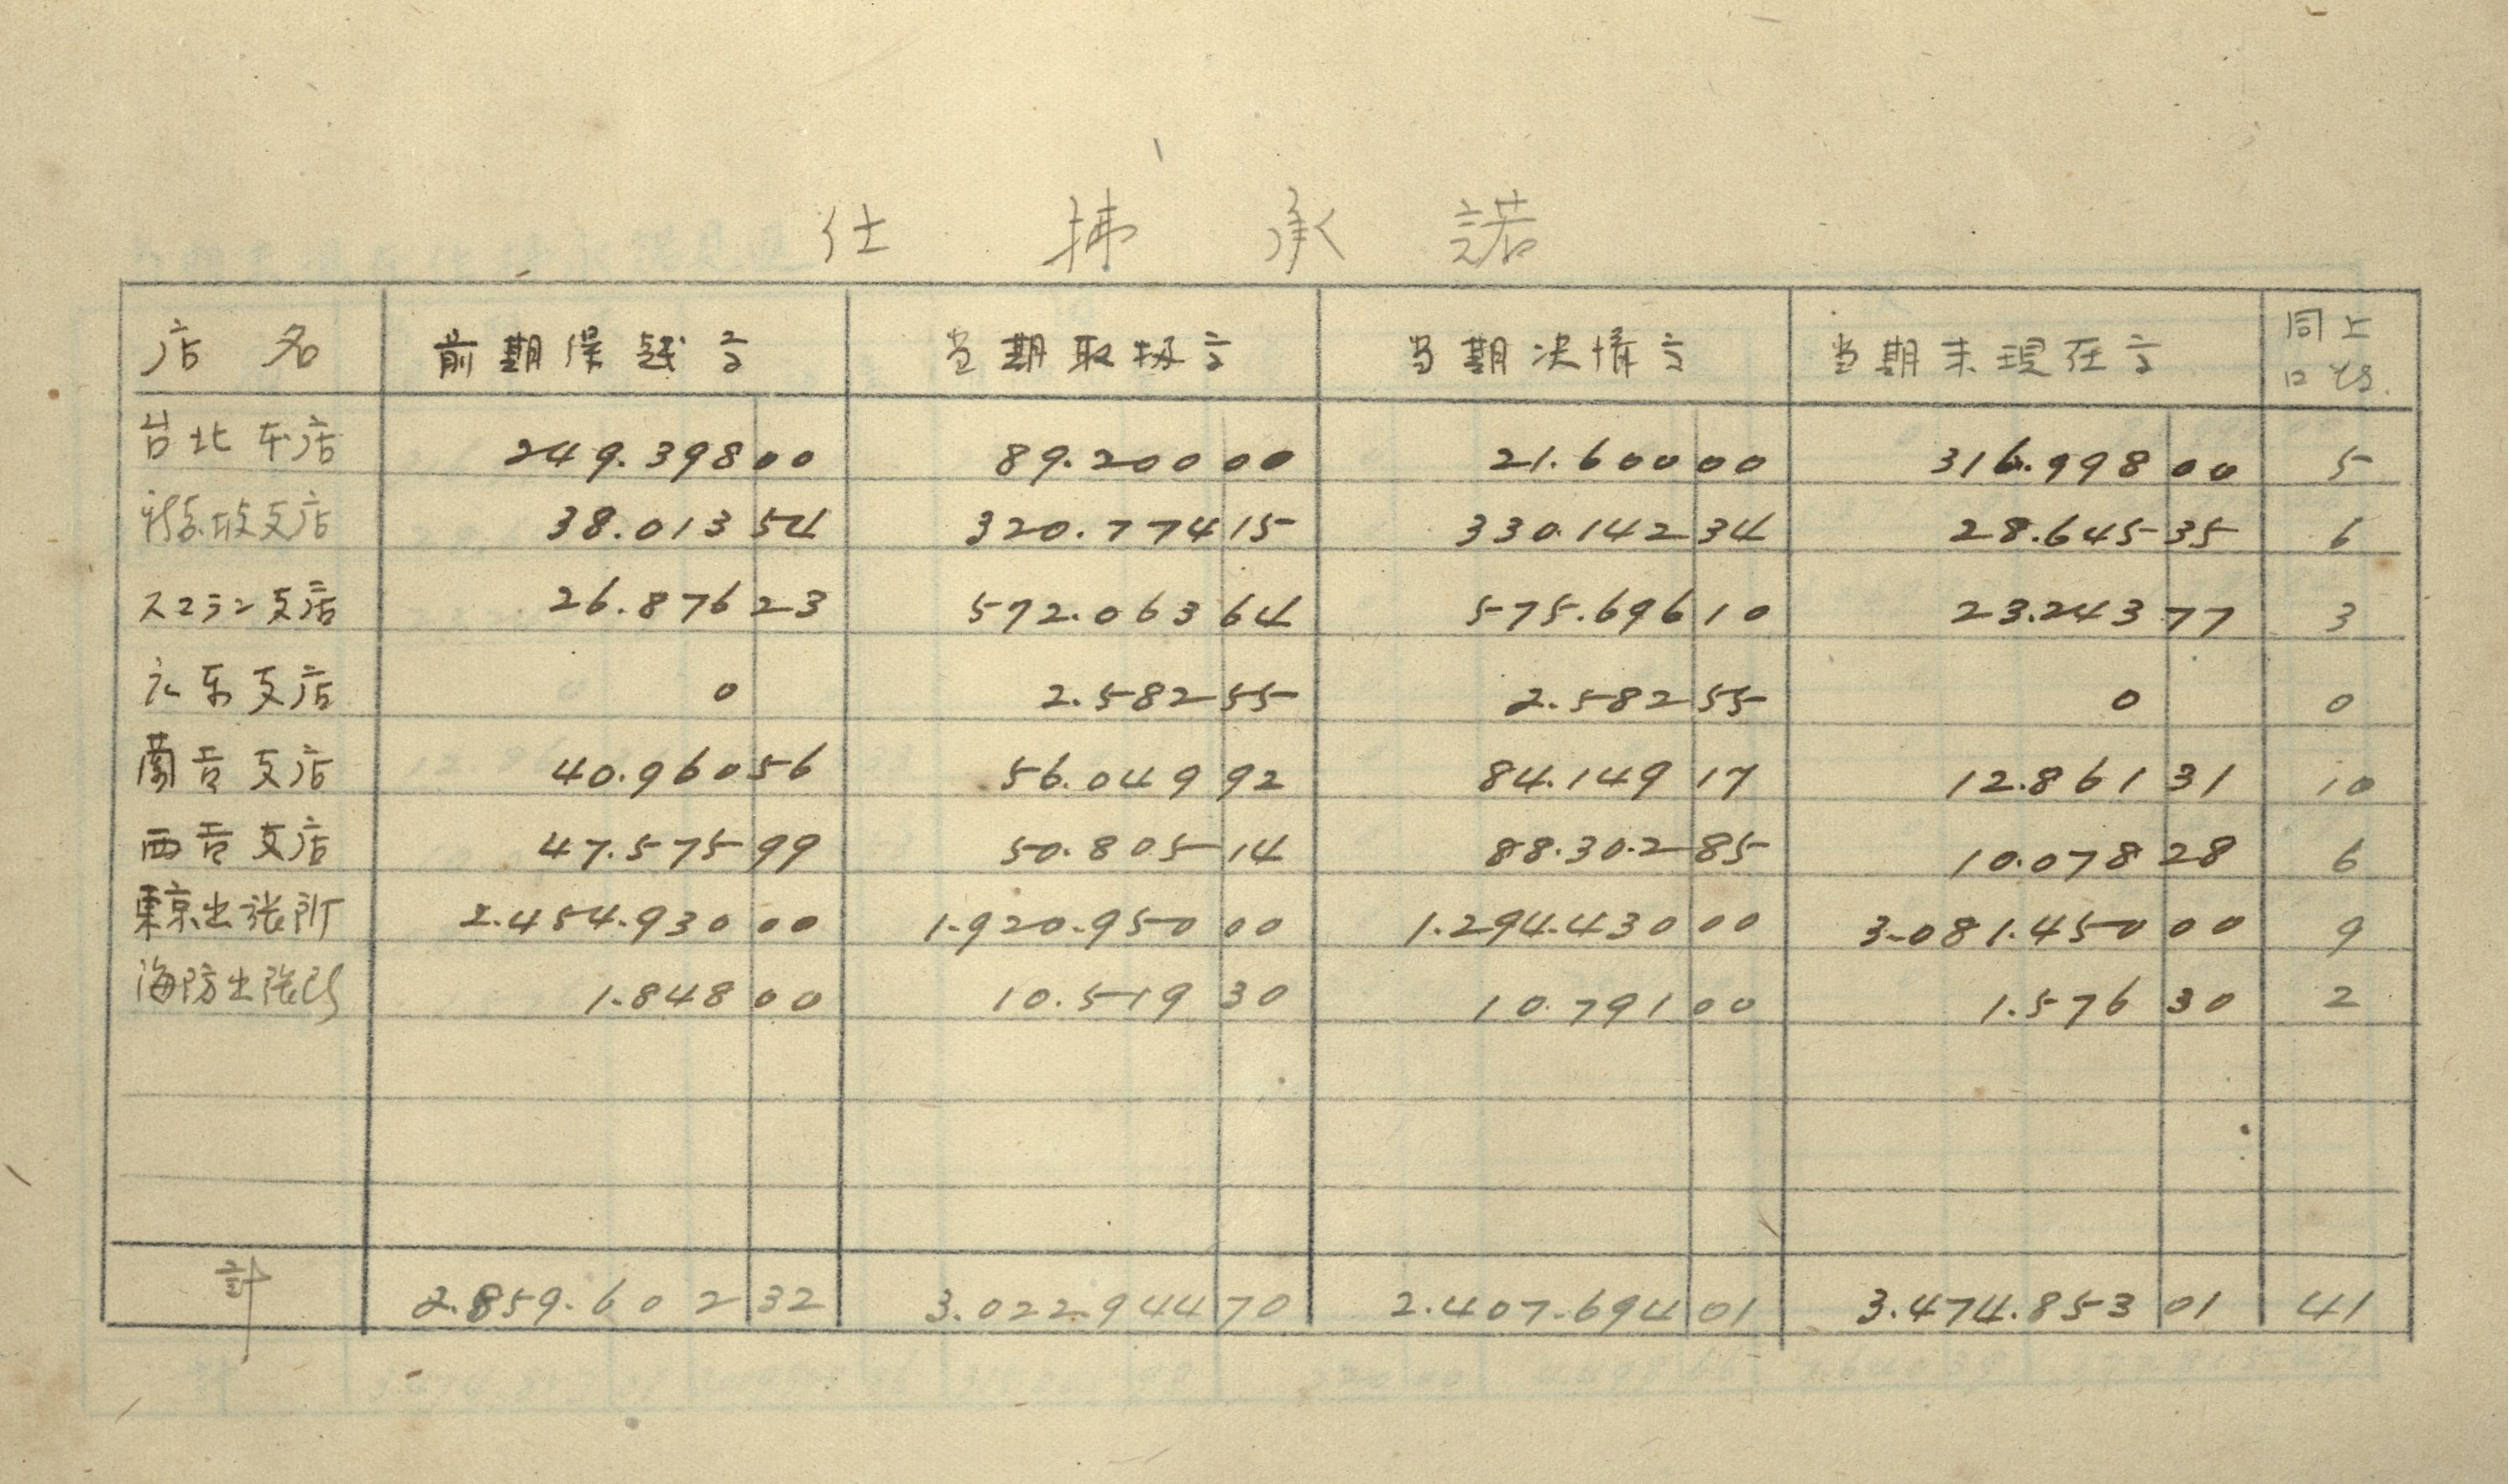 仕拂承諾
店名 前期繰越高 当期取扱高 当期決済高 当期末現在高 同上口数
台北本店 249.398 00 89.200 00 21.600 00 316.998 00 5
新嘉坡支店 38.013 54 320.774 15 330.142 34 28.645 35 6
スマラン支店 26.876 23 572.063 64 575.696 10 23.243 77 3
広東支店 0 2.582 55 2.582 55 0 0
蘭貢支店 40.960 56 56.049 92 84.149 17 12.861 31 10
西貢支店 47.575 99 50.805 14 88.302 85 10.078 28 6
東京出張所 2.454.930 00 1.920.950 00 1.294.430 00 3.081.450 00 9
海防出張所 1.848 00 10.519 30 10.791 00 1.576 30 2
計 2.859.602 32 3.022.944 70 2.407.694 01 3.474.853 01 41